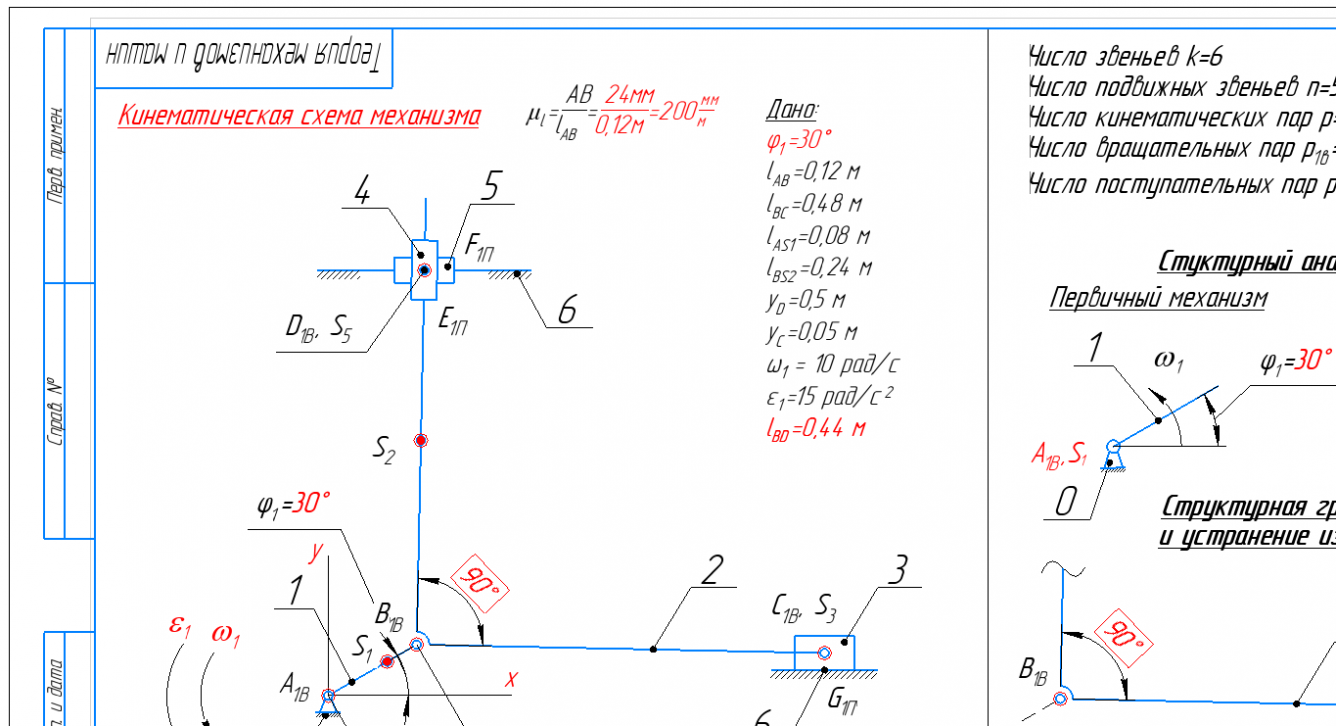 Теория механизмов и машин
Перв. примен.
Справ. №
и дата
Кинематическая схема механизма
μl=AB/lAB=24мм/0,12м=200мм/м
Дано:
φ1=30°
lAB=0,12 м
lBC=0,48 м
lAS1=0,08 м
lBS2=0,24 м
yD=0,5 м
yC=0,05 м
ω1 = 10 рад/с
ε1=15 рад/с²
lBD=0,44 м
4
5
F1П
E1П
6
D1В, S5
S2
φ1=30°
y
90°
2
3
1
B1В
C1В, S3
ε1
ω1
S1
A1В
x
G1П
6
Число звеньев k=6
Число подвижных звеньев n=5
Число кинематических пар p=
Число вращательных пар p1в=
Число поступательных пар p
Стуктурный ана
Первичный механизм
1
ω1
φ1=30°
A1В, S1
0
Структурная гр
и устранение из
90°
B1В